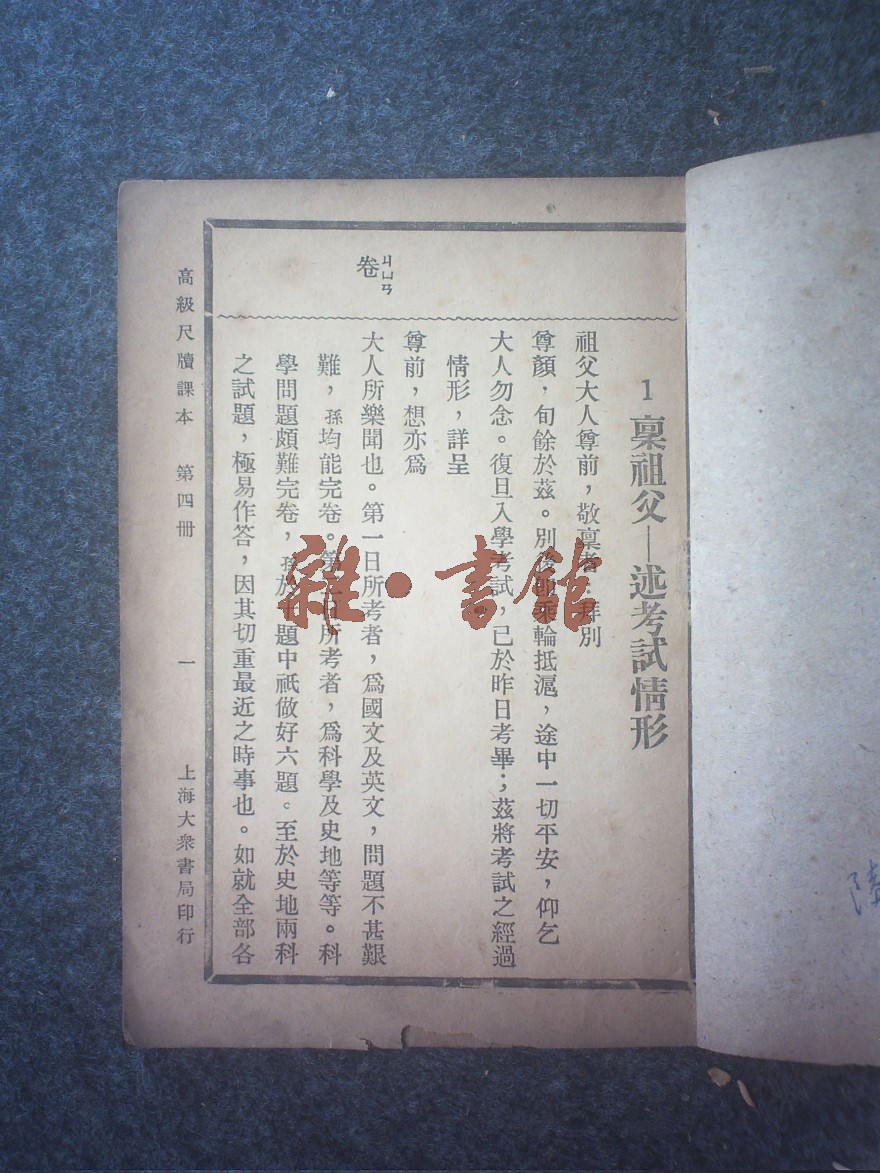 1 稟祖父—述考試情形
祖父大人尊前，敬稟者：拜別
尊顏，旬餘於茲。別後即乘輪抵滬，途中一切平安，仰乞
大人勿念。復旦入學考試，已於昨日考畢；茲將考試之經過
情形，詳呈
尊前，想亦爲
大人所樂聞也。第一日所考者，爲國文及英文，問題不甚艱
難，孫均能完卷。第二日所考者，爲科學及史地等等。科
學問題頗難完卷，孫於十題中祇做好六題。至於史地兩科
之試題，極易作答，因其切重最近之時事也。如就全部各
卷
ㄐㄩㄢ
高級尺牘課本 第四冊 一 上海大衆書局印行
雜·書館